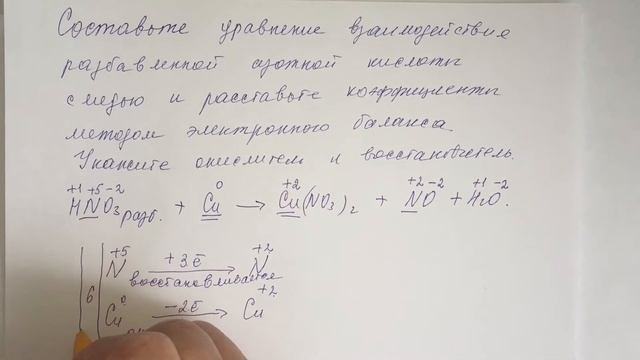 Составьте уравнение взаимодействия
разбавленной азотной кислоты
с медью и расставьте коэффициенты
методом электронного баланса.
Укажите окислитель и восстановитель.
+1 +5 -2 0 +2 +2 -2 +1 -2
HNO₃ разб. + Cu → Cu(NO₃)₂ + NO + H₂O.
+5 +3ē +2
N → N
восстанавливается
6
0 -2ē +2
Cu → Cu